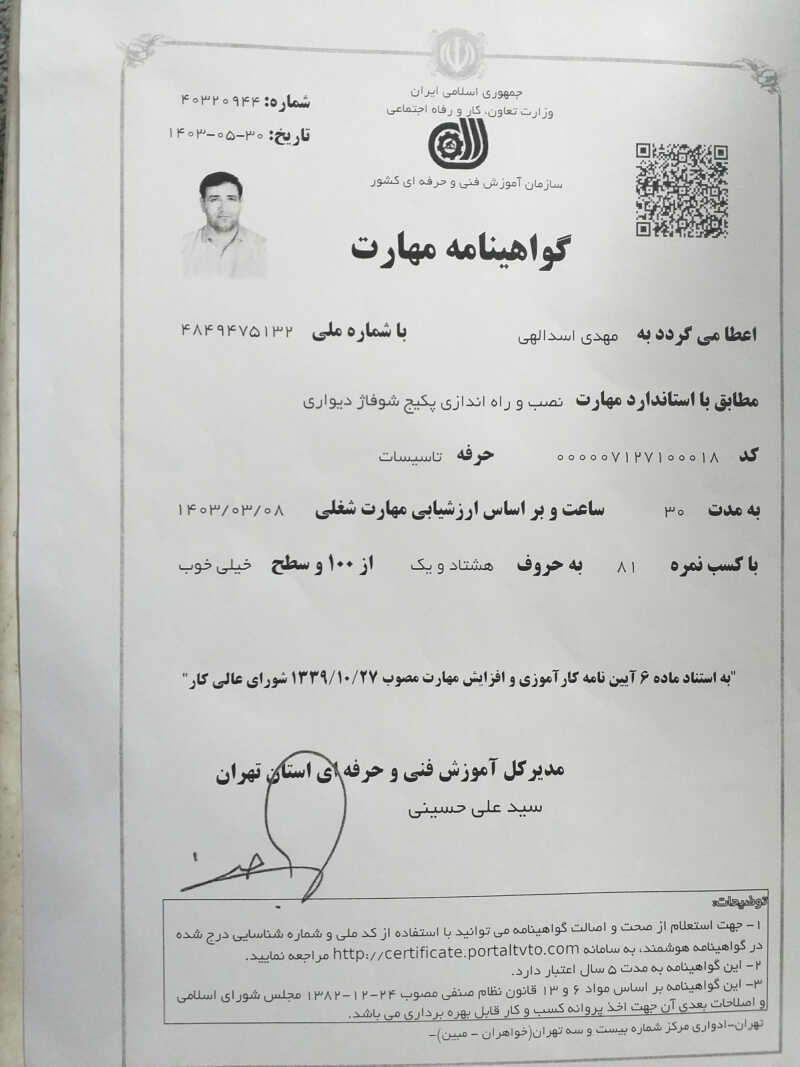 جمهوری اسلامی ایران
وزارت تعاون، کار و رفاه اجتماعی
سازمان آموزش فنی و حرفه ای کشور
شماره: ۴۰۳۲۰۹۴۴
تاریخ: ۱۴۰۳-۰۵-۳۰
گواهینامه مهارت
اعطا می گردد به مهدی اسدالهی با شماره ملی ۴۸۴۹۴۷۵۱۳۲
مطابق با استاندارد مهارت نصب و راه اندازی پکیج شوفاژ دیواری
کد ۰۰۰۰۰۷۱۲۷۱۰۰۰۱۸ حرفه تاسیسات
به مدت ۳۰ ساعت و بر اساس ارزشیابی مهارت شغلی ۱۴۰۳/۰۳/۰۸
با کسب نمره ۸۱ به حروف هشتاد و یک از ۱۰۰ و سطح خیلی خوب
"به استناد ماده ۶ آیین نامه کارآموزی و افزایش مهارت مصوب ۱۳۳۹/۱۰/۲۷ شورای عالی کار"
مدیرکل آموزش فنی و حرفه ای استان تهران
سید علی حسینی
توضیحات:
۱- جهت استعلام از صحت و اصالت گواهینامه می توانید با استفاده از کد ملی و شماره شناسایی درج شده
در گواهینامه هوشمند، به سامانه http://certificate.portaltvto.com مراجعه نمایید.
۲- این گواهینامه به مدت ۵ سال اعتبار دارد.
۳- این گواهینامه بر اساس مواد ۶ و ۱۳ قانون نظام صنفی مصوب ۲۴-۱۲-۱۳۸۲ مجلس شورای اسلامی
و اصلاحات بعدی آن جهت اخذ پروانه کسب و کار قابل بهره برداری می باشد.
تهران-ادواری مرکز شماره بیست و سه تهران(خواهران - مبین)-